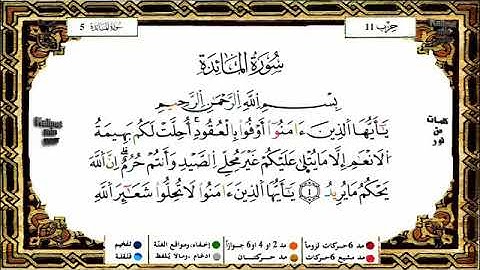 سورة المائدة 5
حزب 11
سُورَةُ المَائِدَة
بِسْمِ اللَّهِ الرَّحْمَٰنِ الرَّحِيمِ
يَٰٓأَيُّهَا ٱلَّذِينَ ءَامَنُوٓا۟ أَوْفُوا۟ بِٱلْعُقُودِ ۚ أُحِلَّتْ لَكُم بَهِيمَةُ
ٱلْأَنْعَٰمِ إِلَّا مَا يُتْلَىٰ عَلَيْكُمْ غَيْرَ مُحِلِّى ٱلصَّيْدِ وَأَنتُمْ حُرُمٌ ۗ إِنَّ ٱللَّهَ
يَحْكُمُ مَا يُرِيدُ ١ يَٰٓأَيُّهَا ٱلَّذِينَ ءَامَنُوا۟ لَا تُحِلُّوا۟ شَعَٰٓئِرَ ٱللَّهِ
كلمات
من
نور
مد 6 حركات لزوماً مد 2 أو 4 أو 6 جوازاً إخفاء، ومواقع الغنّة تفخيم
مد مشبع 6 حركات مد حركتان إدغام، ومالا يُلفظ قلقلة